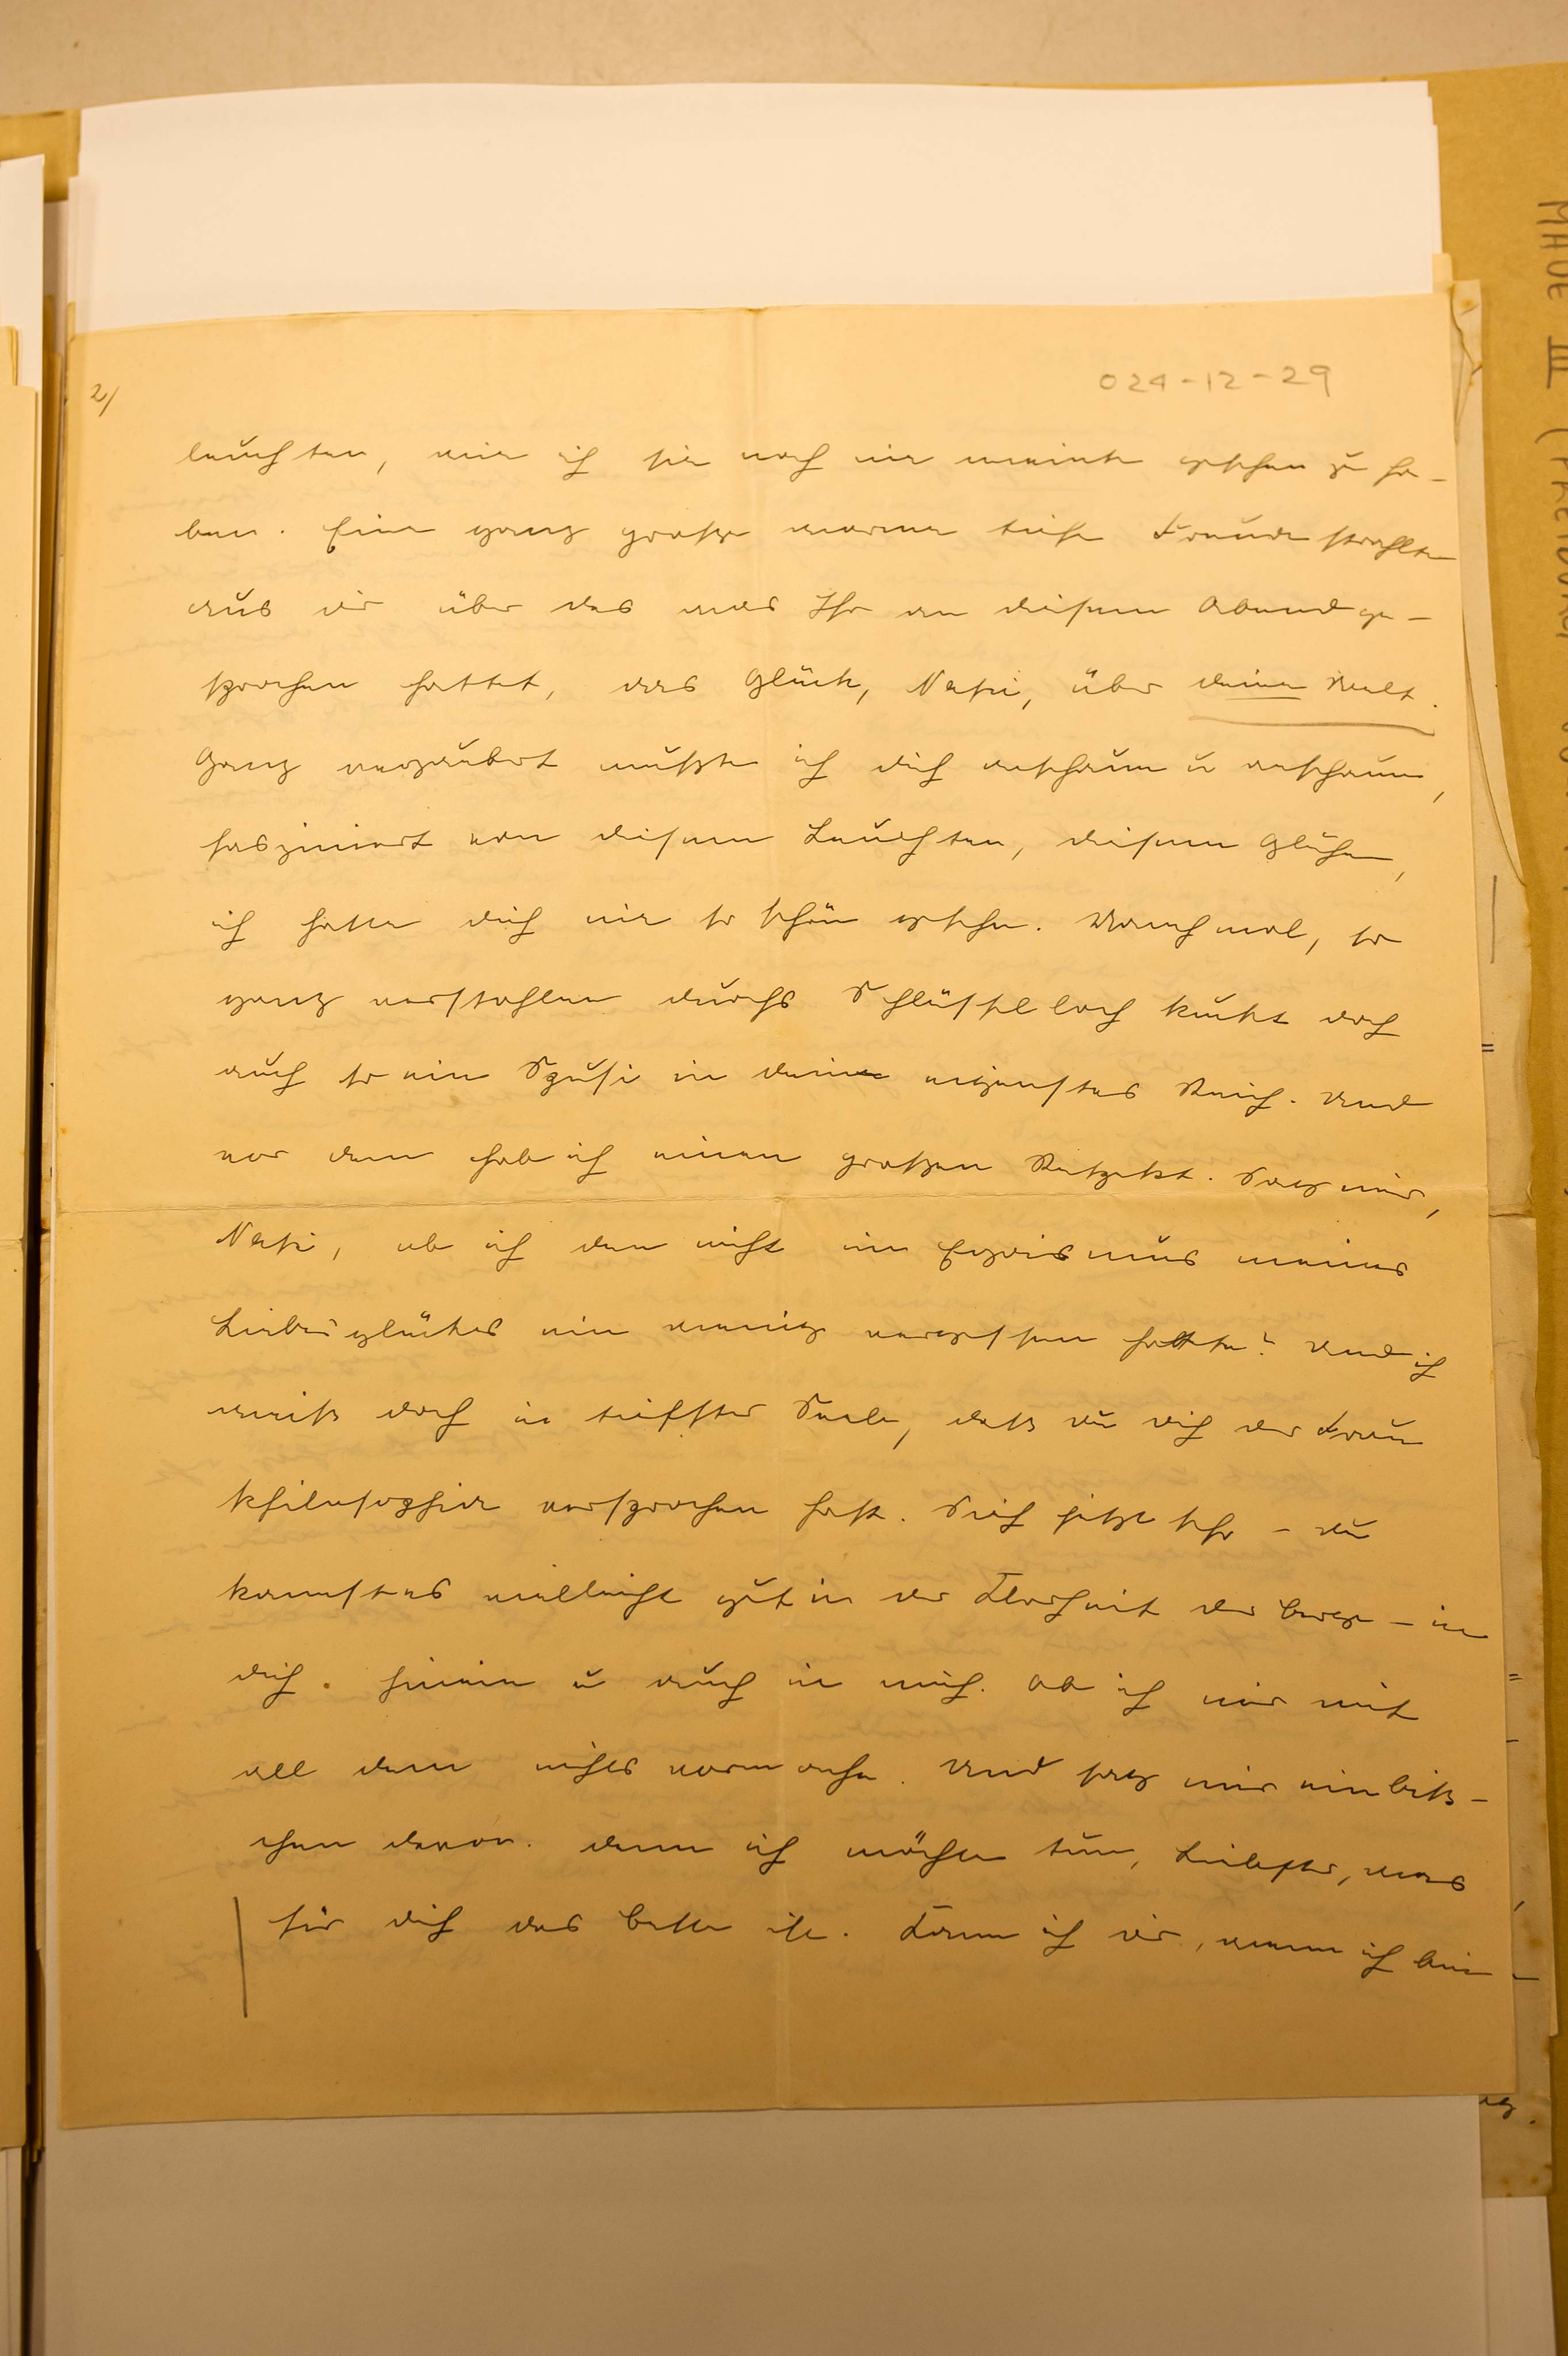 024-12-29
2/
leuchten, wie ich sie noch nie meinte gesehen zu ha-
ben. Eine ganz große warme tiefe Freude strahlte
aus dir über das was Ihr an diesem Abend ge-
sprochen hattet, das Glück, Nafri, über deine Welt.
Ganz verzaubert mußte ich dich anschaun u anschaun,
fasziniert von diesem Leuchten, diesem Glühen,
ich hatte dich nie so schön gesehn. Manchmal, so
ganz verstohlen durchs Schlüsselloch kuckt doch
auch so ein in dein eigenstes Reich. Und
vor dem hab ich einen großen Respekt. Sag mir,
ob ich den nicht im Egoismus meines
Liebesglückes ein wenig vergessen hatte? Und ich
weiß doch in tiefster Seele, daß du dich der Frau
Philosophie versprochen hast. Sieh jetzt sehr – du
kannst es vielleicht gut in der Klarheit der Berge – in
dich. hinein u auch in mich. Ob ich mir mit
all dem nichts vormache. Und sag mir ein biß-
chen davon. Denn ich möchte tun, Liebster, was
für dich das beste ist. Kann ich dir, wenn ich bei
MAUE III (